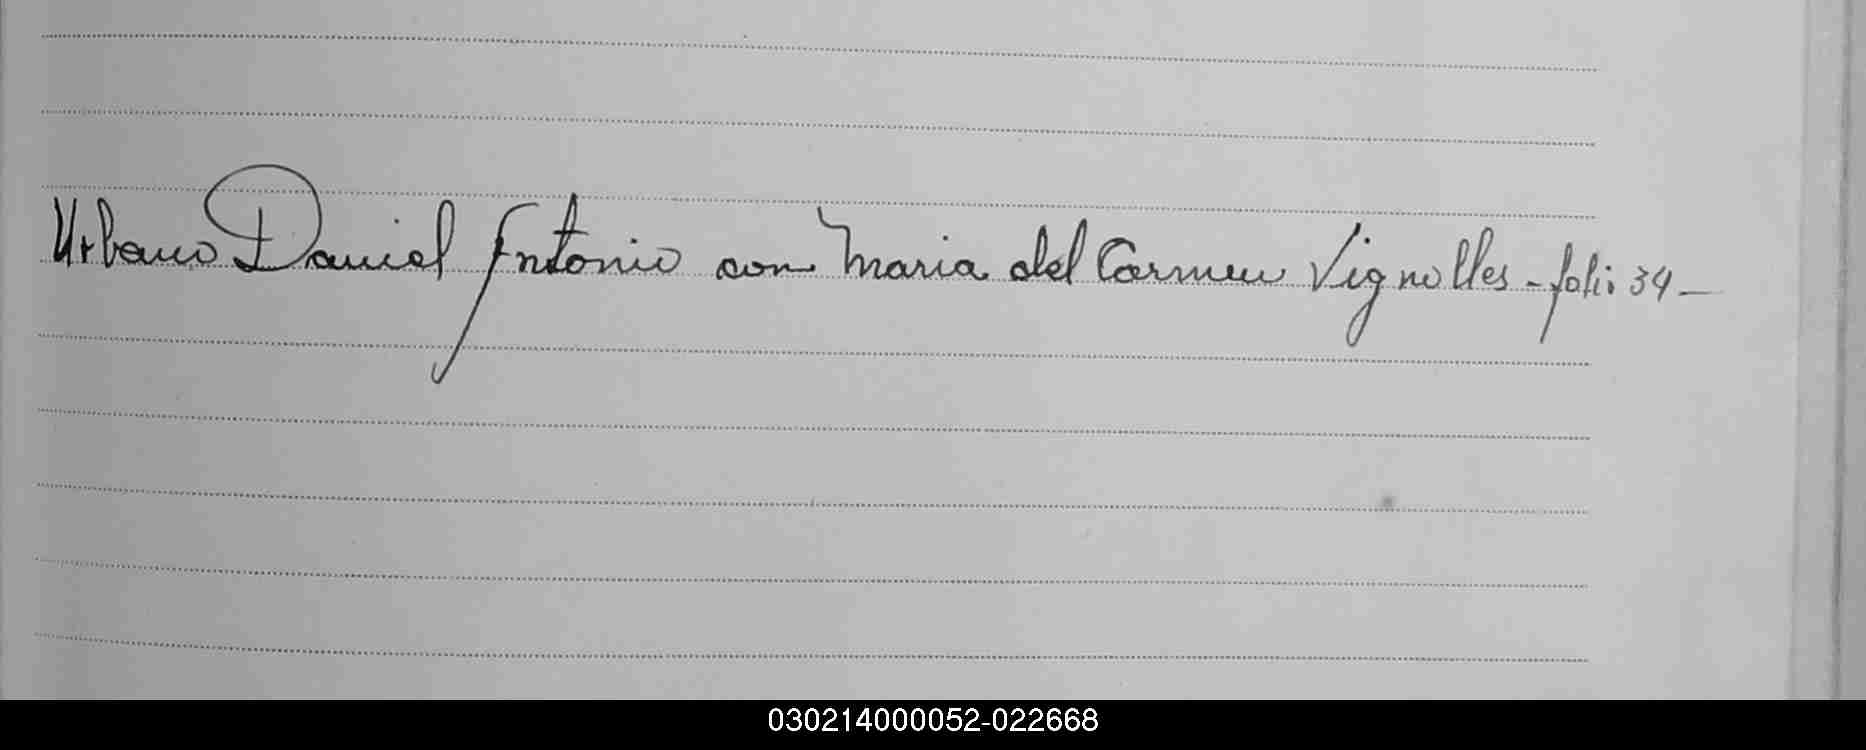 Urbano Daniel Antonio con Maria del Carmen Vignolles - folio 34 -
030214000052-022668